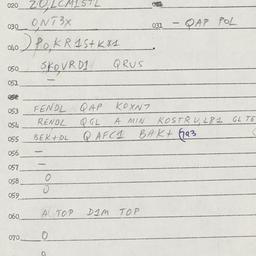 020 ZO,LCM15TL
030 O,NT3X 031 - QAP POL
040 PO,KR1S+K81
050 SKO,VRD1 QRUS
051 -
053 FENDL QAP KOXN7
054 RENDL QGL A MIN KOSTRU,L81 GLTE
055 BEK+DL QAFC1 BAK+
056 -
057 -
058 0
059
060 A TOP D1M TOP
070 0